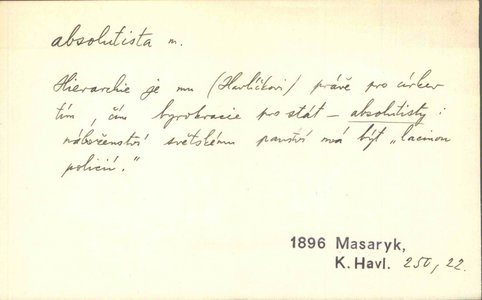 absolutista m.
Hierarchie je mu (Havlíčkovi) právě pro církev
tím, čím byrokracie pro stát – absolutisty i
náboženství světskému panství má být „lacinou
policií."
1896 Masaryk,
K. Havl. 250, 22.